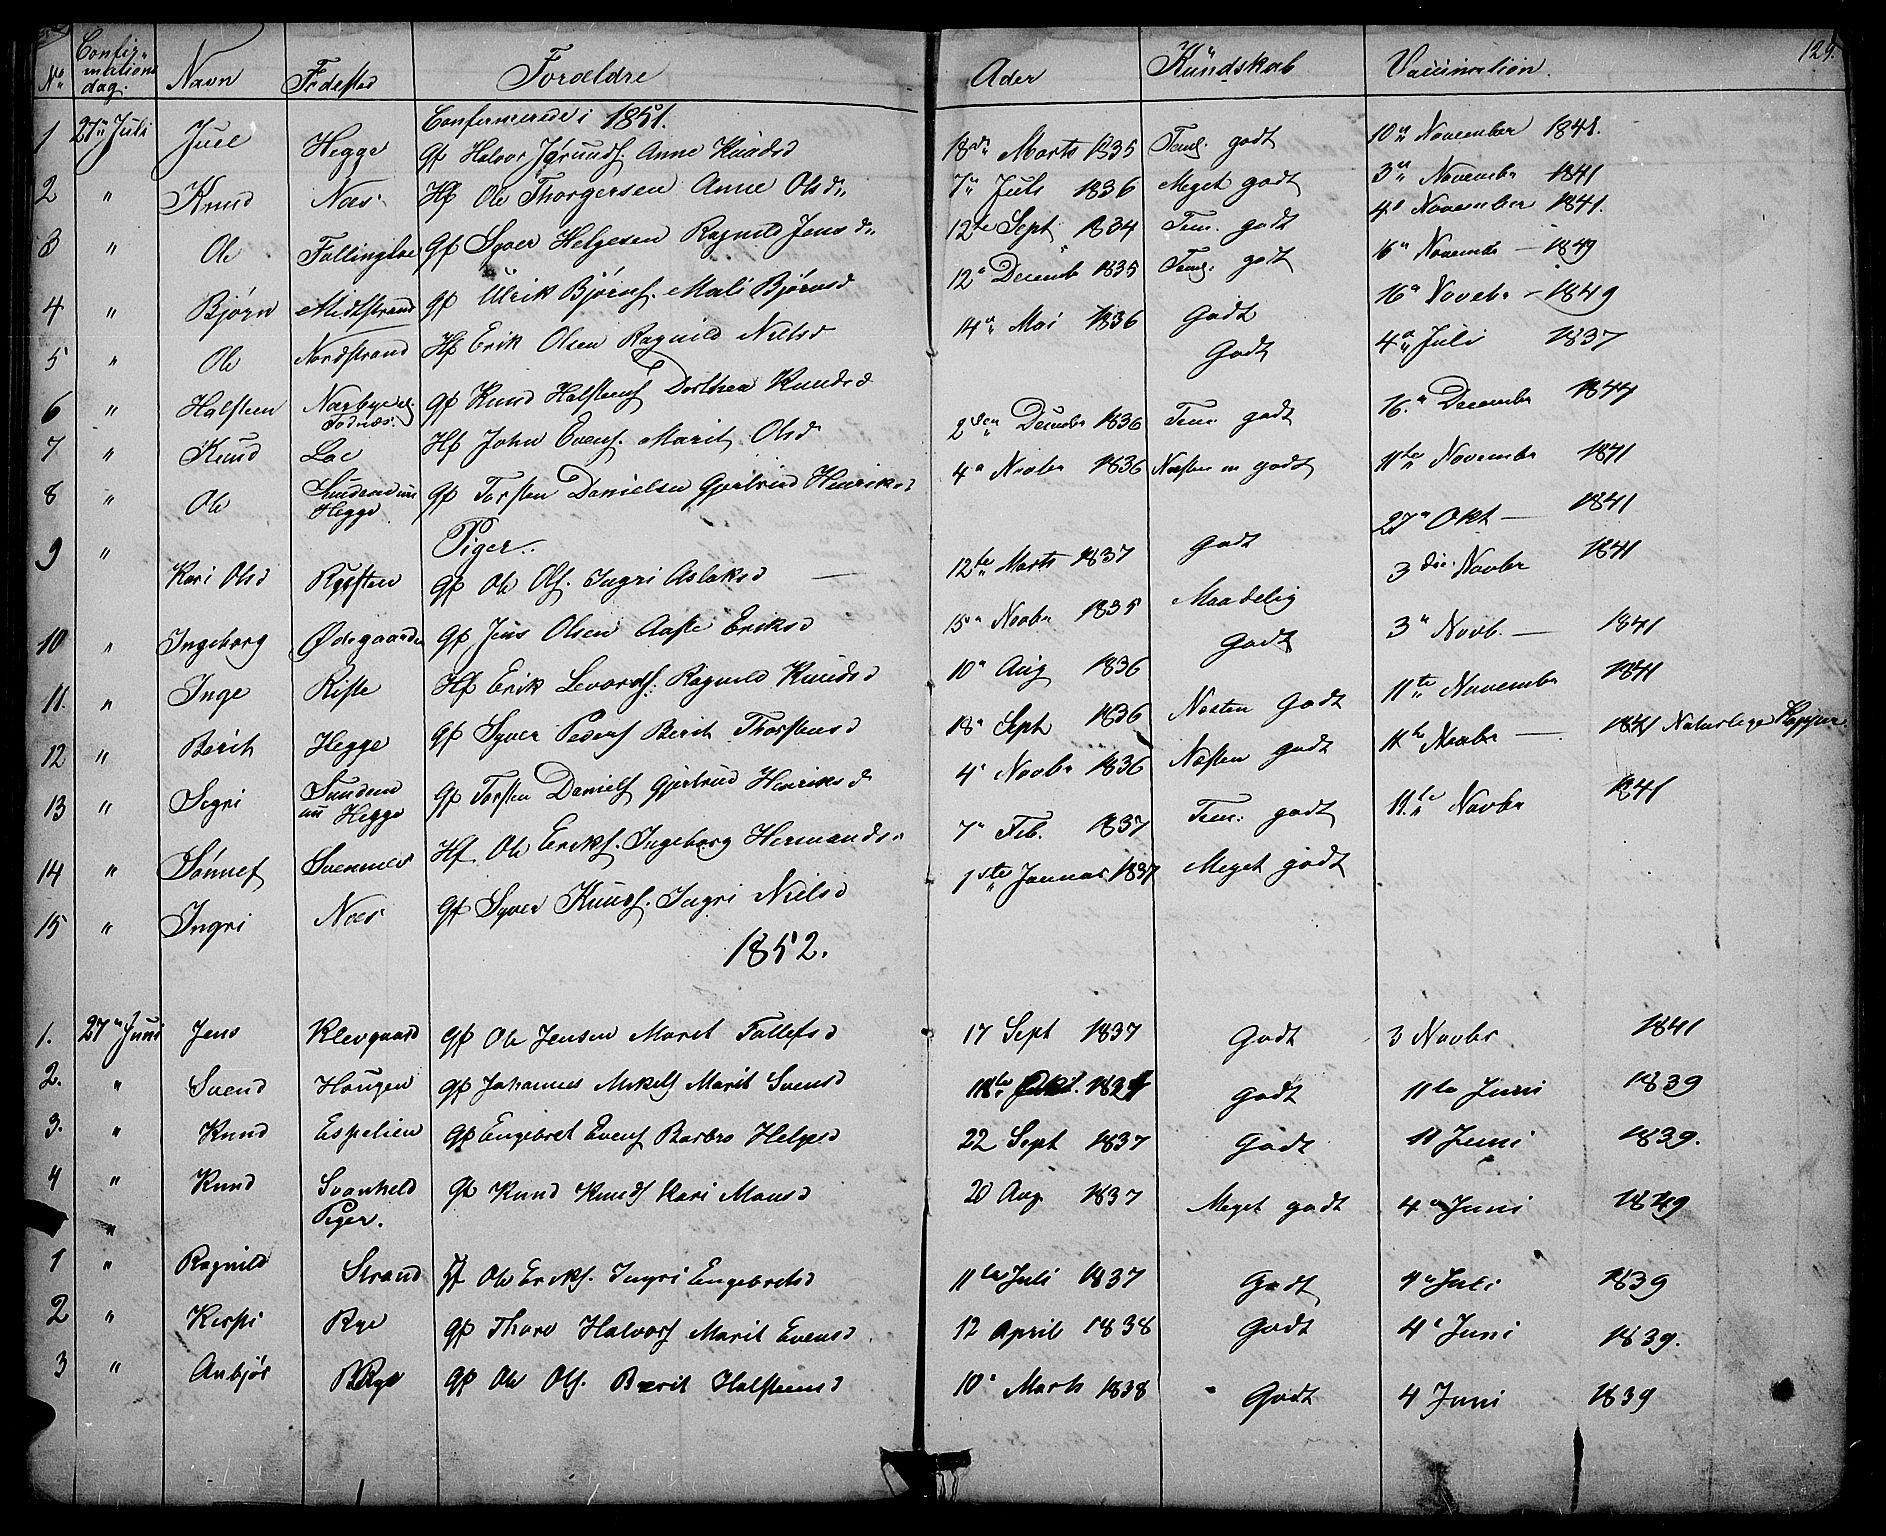 129.
No Confirmations dag. Navn Fødested Forældre Alder Kundskab Vaccination.
Confirmerede i 1851.
1 27n Juli Juel Hegge Gf Halvor Jørunds. Anne Knudsd 18de Marts 1835 Teml. godt 10n November 1841.
2 " Knud Næs Hf Ole Thorgersen Anne Olsd. 7n Juli 1836 Meget godt 3n November 1841
3 " Ole Fallingboe Gf Syver Helgesen Ragnild Jensd. 12te Sept 1834 Tem. godt 4n November 1841.
4 " Bjørn Midtstrand Gf Ulrik Bjørns. Mali Bjørnsd 12n Decemb 1835 Teml. godt 16n Novembr – 1849
5 " Ole Nordstrand Hf Erik Olsen Ragnild Nielsd 14n Mai 1836 Godt 16n Novebr – 1849
6 " Halsteen Gf Knud Halsteens Dorthea Knudsd Godt 4n Juli 1837
7 " Knud Loe Hf John Evens. Marit Olsd 2den Decembr 1836 Tem godt 16.n December 1844
8 " Ole Hegge Gf Torsten Danielsen Gjertrud Henriksd 4n Novbr 1836 Næsten godt 11te November 1841
Piger..
9 " Kari Olsd Rysten Gf Ole Ols. Ingri Aslaksd — 12te Marts 1837 godt 27n Okt – 1841
10 " Ingeborg Ødegaarden Gf Jens Olsen Aaste Eriksd 15n Novbr 1835 Maadelig 3die Novbr 1841
11. " Inge Riste Hf Erik Levords. Ragnild Knudsd 10n Aug 1836 Godt 3n Novb. — 1841
12 " Berit Hegge Gf Syver Peders Berit Thorstensd 18n Sept 1836 Næsten Godt 11te November 1841
13 " Segri Sundem Hegge Gf Torsten Daniels Gjertrud Henriksd 4n Novbr 1836 Næsten godt 11te Novbr — 1841 Naturlige Kopper.
14 " Sønnef Svennes Hf Ole Eriks. Ingeborg Hermandsd 7n Feb. 1837 Tem. godt 11.te Novbr 1841
15 " Ingri Næs Gf Syver Knuds. Ingri Nielsd 1ste Januar 1837 Meget godt
1852.
1. 27n Juni Jens Klevgaard Gf Ole Jensen Marit Tollefsd 17 Sept 1837 Godt 3 Novbr 1841
2. " Svend Haugen Gf Johannes Mikels Marit Svensd 11te godt 11te Juni 1839
3. " Knud Espelien Gf Engebret Evens Barbro Helgesd 22 Sept 1837 Godt 11 Juni 1839.
4 " Knud Svanheld Gf Knud Knuds Kari Monsd 20 Aug 1837 Meget godt 4n Juni 1849
" Piger.
1 " Ragnild Strand Gf Ole Eriks. Ingri Engebretsd 11te Juli 1837 Godt 4n Juli 1839
2 " Kersti Rye Gf Thore Halvors Marit Evensd 12 April 1838 Godt 4n Juni 1839.
3 " Anbjør Rye Gf Ole Ols. Berit Halsteensd 10n Marts 1838 Godt 4 Juni 1839